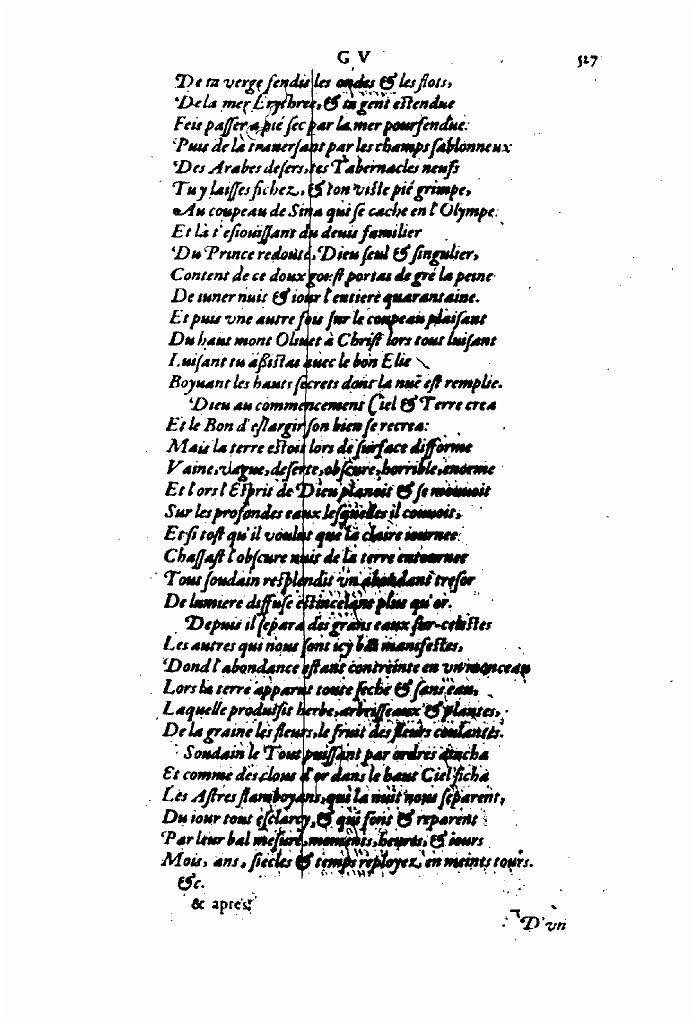 G V 527
De ta verge fendis les ondes & les flots,
De la mer Erythree, & ta gent estendue
Feis passer a pié sec par la mer pourfendue.
Puis de là trauersant par les champs sablonneux
Des Arabes desers, tes Tabernacles neufs
Tu y laisses fichez, & ton viste pié grimpe,
Au coupeau de Sina qui se cache en l'Olympe.
Et là t'esiouissant du deuis familier
Du Prince redouté, Dieu seul & singulier,
Content de ce doux goust portas de gré la peine
De iuner nuit & iour l'entiere quarantaine.
Et puis vne autre fois sur le coupeau plaisant
Du haut mont Oliuet à Christ lors tout luisant
Luisant tu aßistas auec le bon Elie
Boyuant les hauts secrets dont la nuë est remplie.
Dieu au commencement Ciel & Terre crea
Et le Bon d'eslargir son bien se recrea:
Mais la terre estoit lors de surface difforme
Vaine, vague, deserte, obscure, horrible, enorme
Et lors l'Esprit de Dieu planoit & se mouuoit
Sur les profondes eaux lesquelles il couuoit,
Et si tost qu'il voulut que la claire iournee
Chassast l'obscure nuit de la terre entournee
Tout soudain resplendit vn abondant tresor
De lumiere diffuse estincelant plus qu'or.
Depuis il separa des grans eaux sur-celestes
Les autres qui nous sont icy bas manifestes,
Dond l'abondance estant contreinte en vn monceau
Lors la terre apparut toute seche & sans eau,
Laquelle produisit herbe, arbrisseaux & plantes,
De la graine les fleurs, le fruit des fleurs coulantes.
Soudain le Tout puissant par ordres attacha
Et comme des clous d'or dans le haut Ciel ficha
Les Astres flamboyans, qui la nuit nous separent,
Du iour tout esclarcy, & qui font & reparent
Par leur bal mesuré, moments, heures, & iours
Mois, ans, siecles & temps reployez, en meints tours.
&c.
& apres,
D'vn